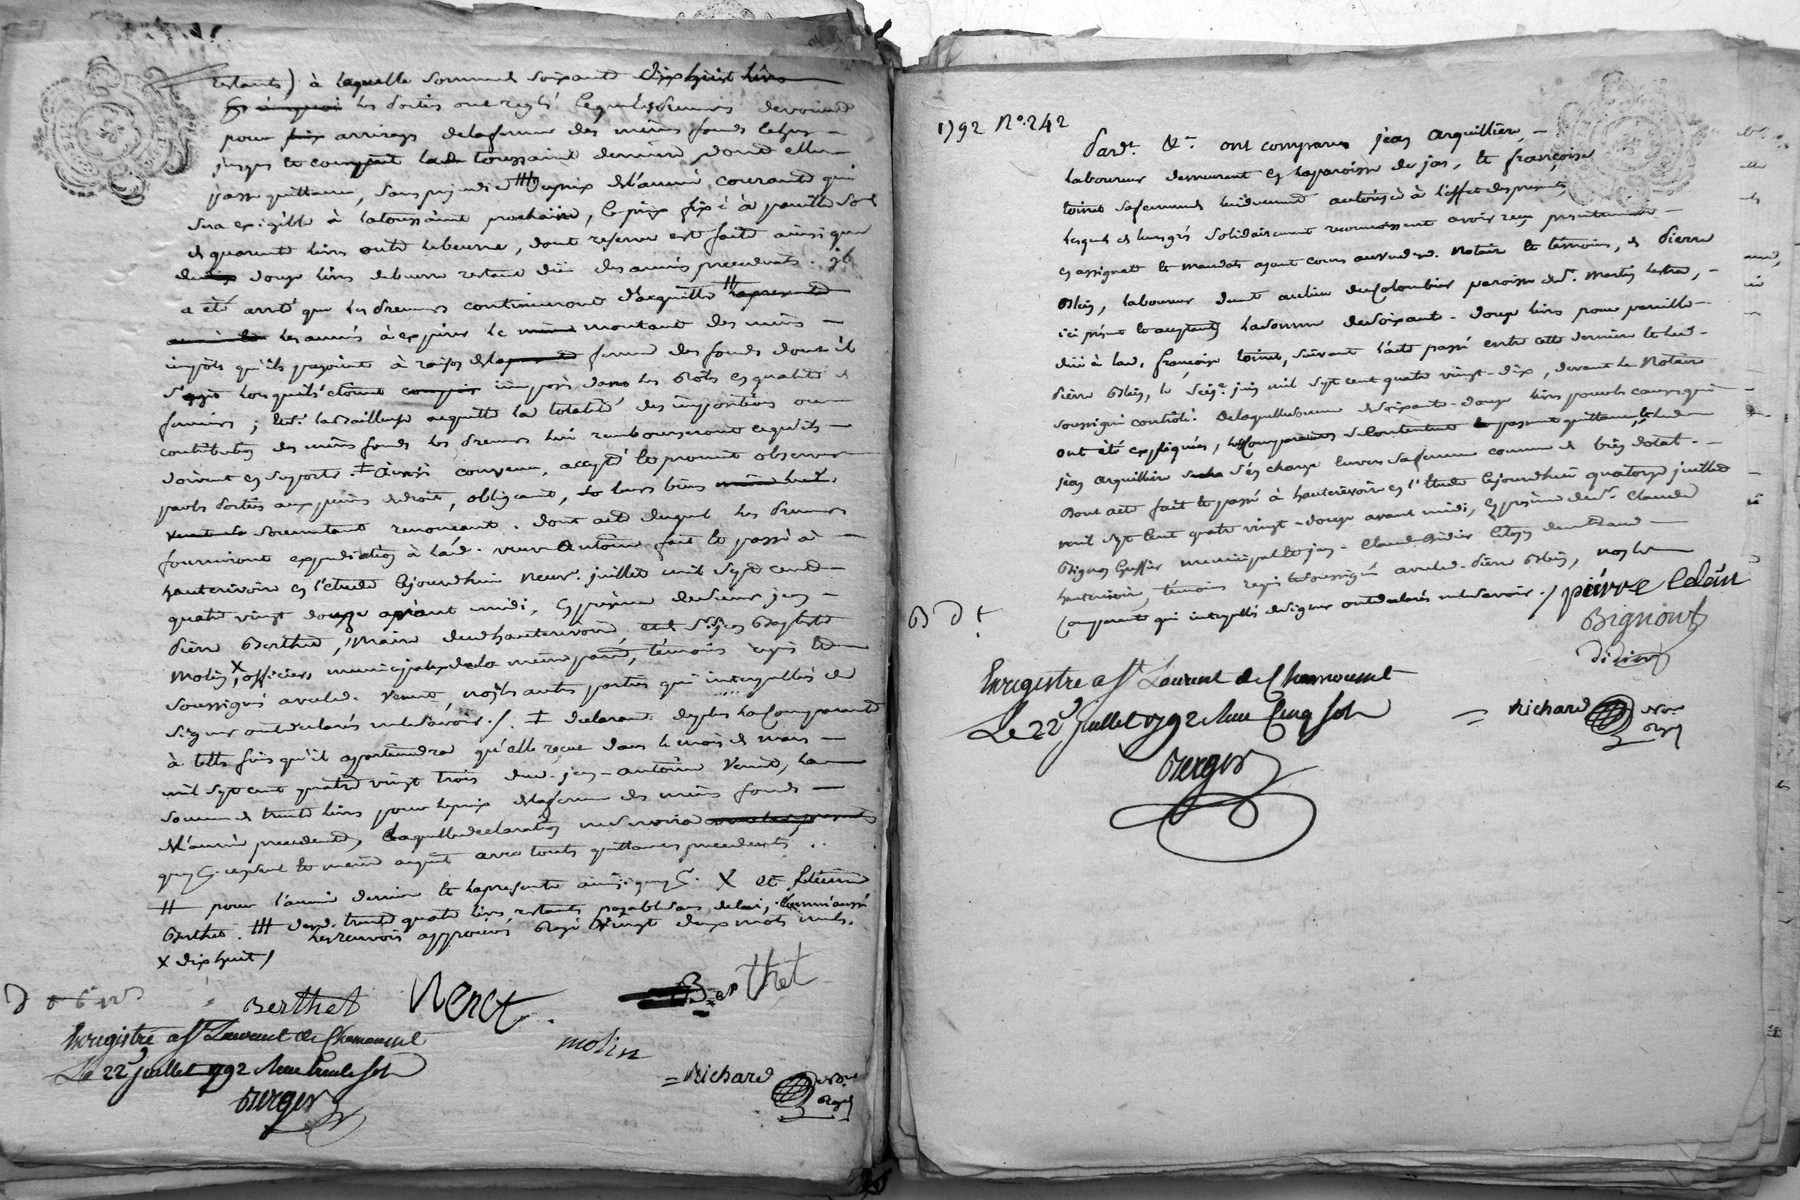 restants) à laquelle somme de soixante dix huit livres
les parties ont reglé ce que les preneurs devoient
pour arrirages de la ferme des mêmes fonds
jusques et compris la toussaint derniere, dont elle
passe quittance, sans prejudice # du prix de l'année courante qui
sera exigible à la toussaint prochaine, le prix fixé à pareille somme
de quarante livres outre le beurre, dont reserve est faite ainsi que
douze livres de beurre restant dû des années precedentes. il
a été arreté que les preneurs continueront d'acquitter #
les années à expirer le montant des mêmes
impots qu'ils payoient à raison de la ferme des fonds dont il
s'agit lorsqu'ils étoient imposés dans les rôles en qualité de
fermiers; acquitte la totalité des impositions ou
contributions des mêmes fonds les preneurs lui rembourseront ce qu'ils
doivent en suporter ‡ Ainsi convenu, accepté et promis observer
par les parties aux peines de droit, obligeant, leurs biens
renonçant. dont acte duquel les preneurs
fourniront expedition à lad. veuve fait et passé à
hauterivoire en l'étude cejourdhui neuf juillet mil sept cent
quatre vingt douze avant midi, en presence de sieur jean
pierre Berthet, maire dud hauterivoire, et de Sr. jean Baptiste
Molin X officiers municipaux de la même paroisse, témoins requis et
soussignés avec led. Venet, non les autres parties qui interpellées de
signer ont déclaré ne le savoir ./. ‡ declarant de plus la comparante
à telle fois qu'il appartiendra qu'elle reçut dans le mois de mars
mil sept cent quatre vingt trois dud. jean-antoine Venet, la
somme de trente livres pour le prix de la ferme des mêmes fonds
de l'année precedente, laquelle declaration ne servira
que d'un seul et même acquit avec toutes quittances precedentes ..
# pour l'année derniere et la presente ainsi que X et
Berthet. # desd. trente quatre livres restants payable sans delai, comme aussi
les renvois approuvés vingt deux mots nuls.
X dix huit /
Berthet Venet Berthet
Enregistré a St Laurent de Chamousset molin
Le 22 juillet 1792 Reçu trente sols Richard
Berger
1792 N°. 242
Pardt. &a. ont comparu jean arquilliere,
laboureur demeurant en la paroisse de jas, et françoise
toinet sa femme de lui duement autorisée à l'effet des presentes
lesquels de leurs grés solidairement reconnoissent avoir reçu presentement
en assignats et mandats ayant cours au vu dud. Notaire et témoins, de Pierre
Bleïn, laboureur demt. au lieu du Colombier paroisse de St. Martin lestra,
ici présent et acceptant la somme de soixante-douze livres pour pareille
düe à lad. françoise toinet, suivant l'acte passé entre cette derniere et led.
Pierre Bleïn, le seize juin mil sept cent quatre vingt-dix, devant le Notaire
soussigné contrôlé. De laquelle somme de soixante-douze livres pour les causes qui
ont été expliquées, les comparants se contentent et passent quittance, led.
jean arquilliere s'en charge envers sa femme comme de bien dotal.
Dont acte fait et passé à hauterivoire en l'étude cejourdhui quatorze juillet
mil sept cent quatre vingt-douze avant midi, en presence de Sr. Claude
Bignon Greffier municipal et jean-Claude Didier Citoyen demeurant
hauterivoire, témoins requis et soussignés avec led. Pierre Bleïn, non les
comparants qui interpellés de signer ont declaré ne le savoir ./.
pierre bleïn
Bignion
didier
Enregistré a St Laurent de Chamousset
Le 22 juillet 1792 Reçu Cinq sols Richard
Berger